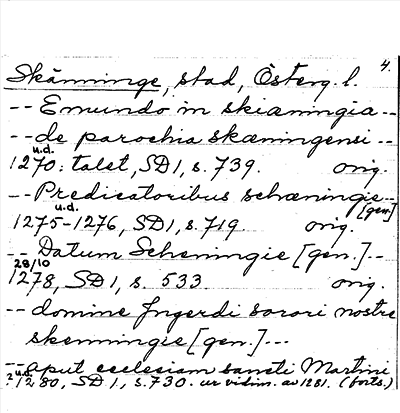 4.
Skänninge, stad, Österg. l.
-- Emundo in skiæningia --
-- de parochia skæningensi --
u.d.
1270: talet, SD 1, s. 739. orig.
-- Predicatoribus schæningie --
u.d. [gen.]
1275-1276, SD 1, s. 719. orig.
-- Datum Scheningie [gen.] --
28/10
1278, SD 1, s. 533. orig.
-- domine Jngerdi sorori nostre
skenningie [gen.] ---
-- aput ecclesiam sancti Martini
? u.d.
1280, SD 1, s. 730. ur vidim. av 1281. (forts.)